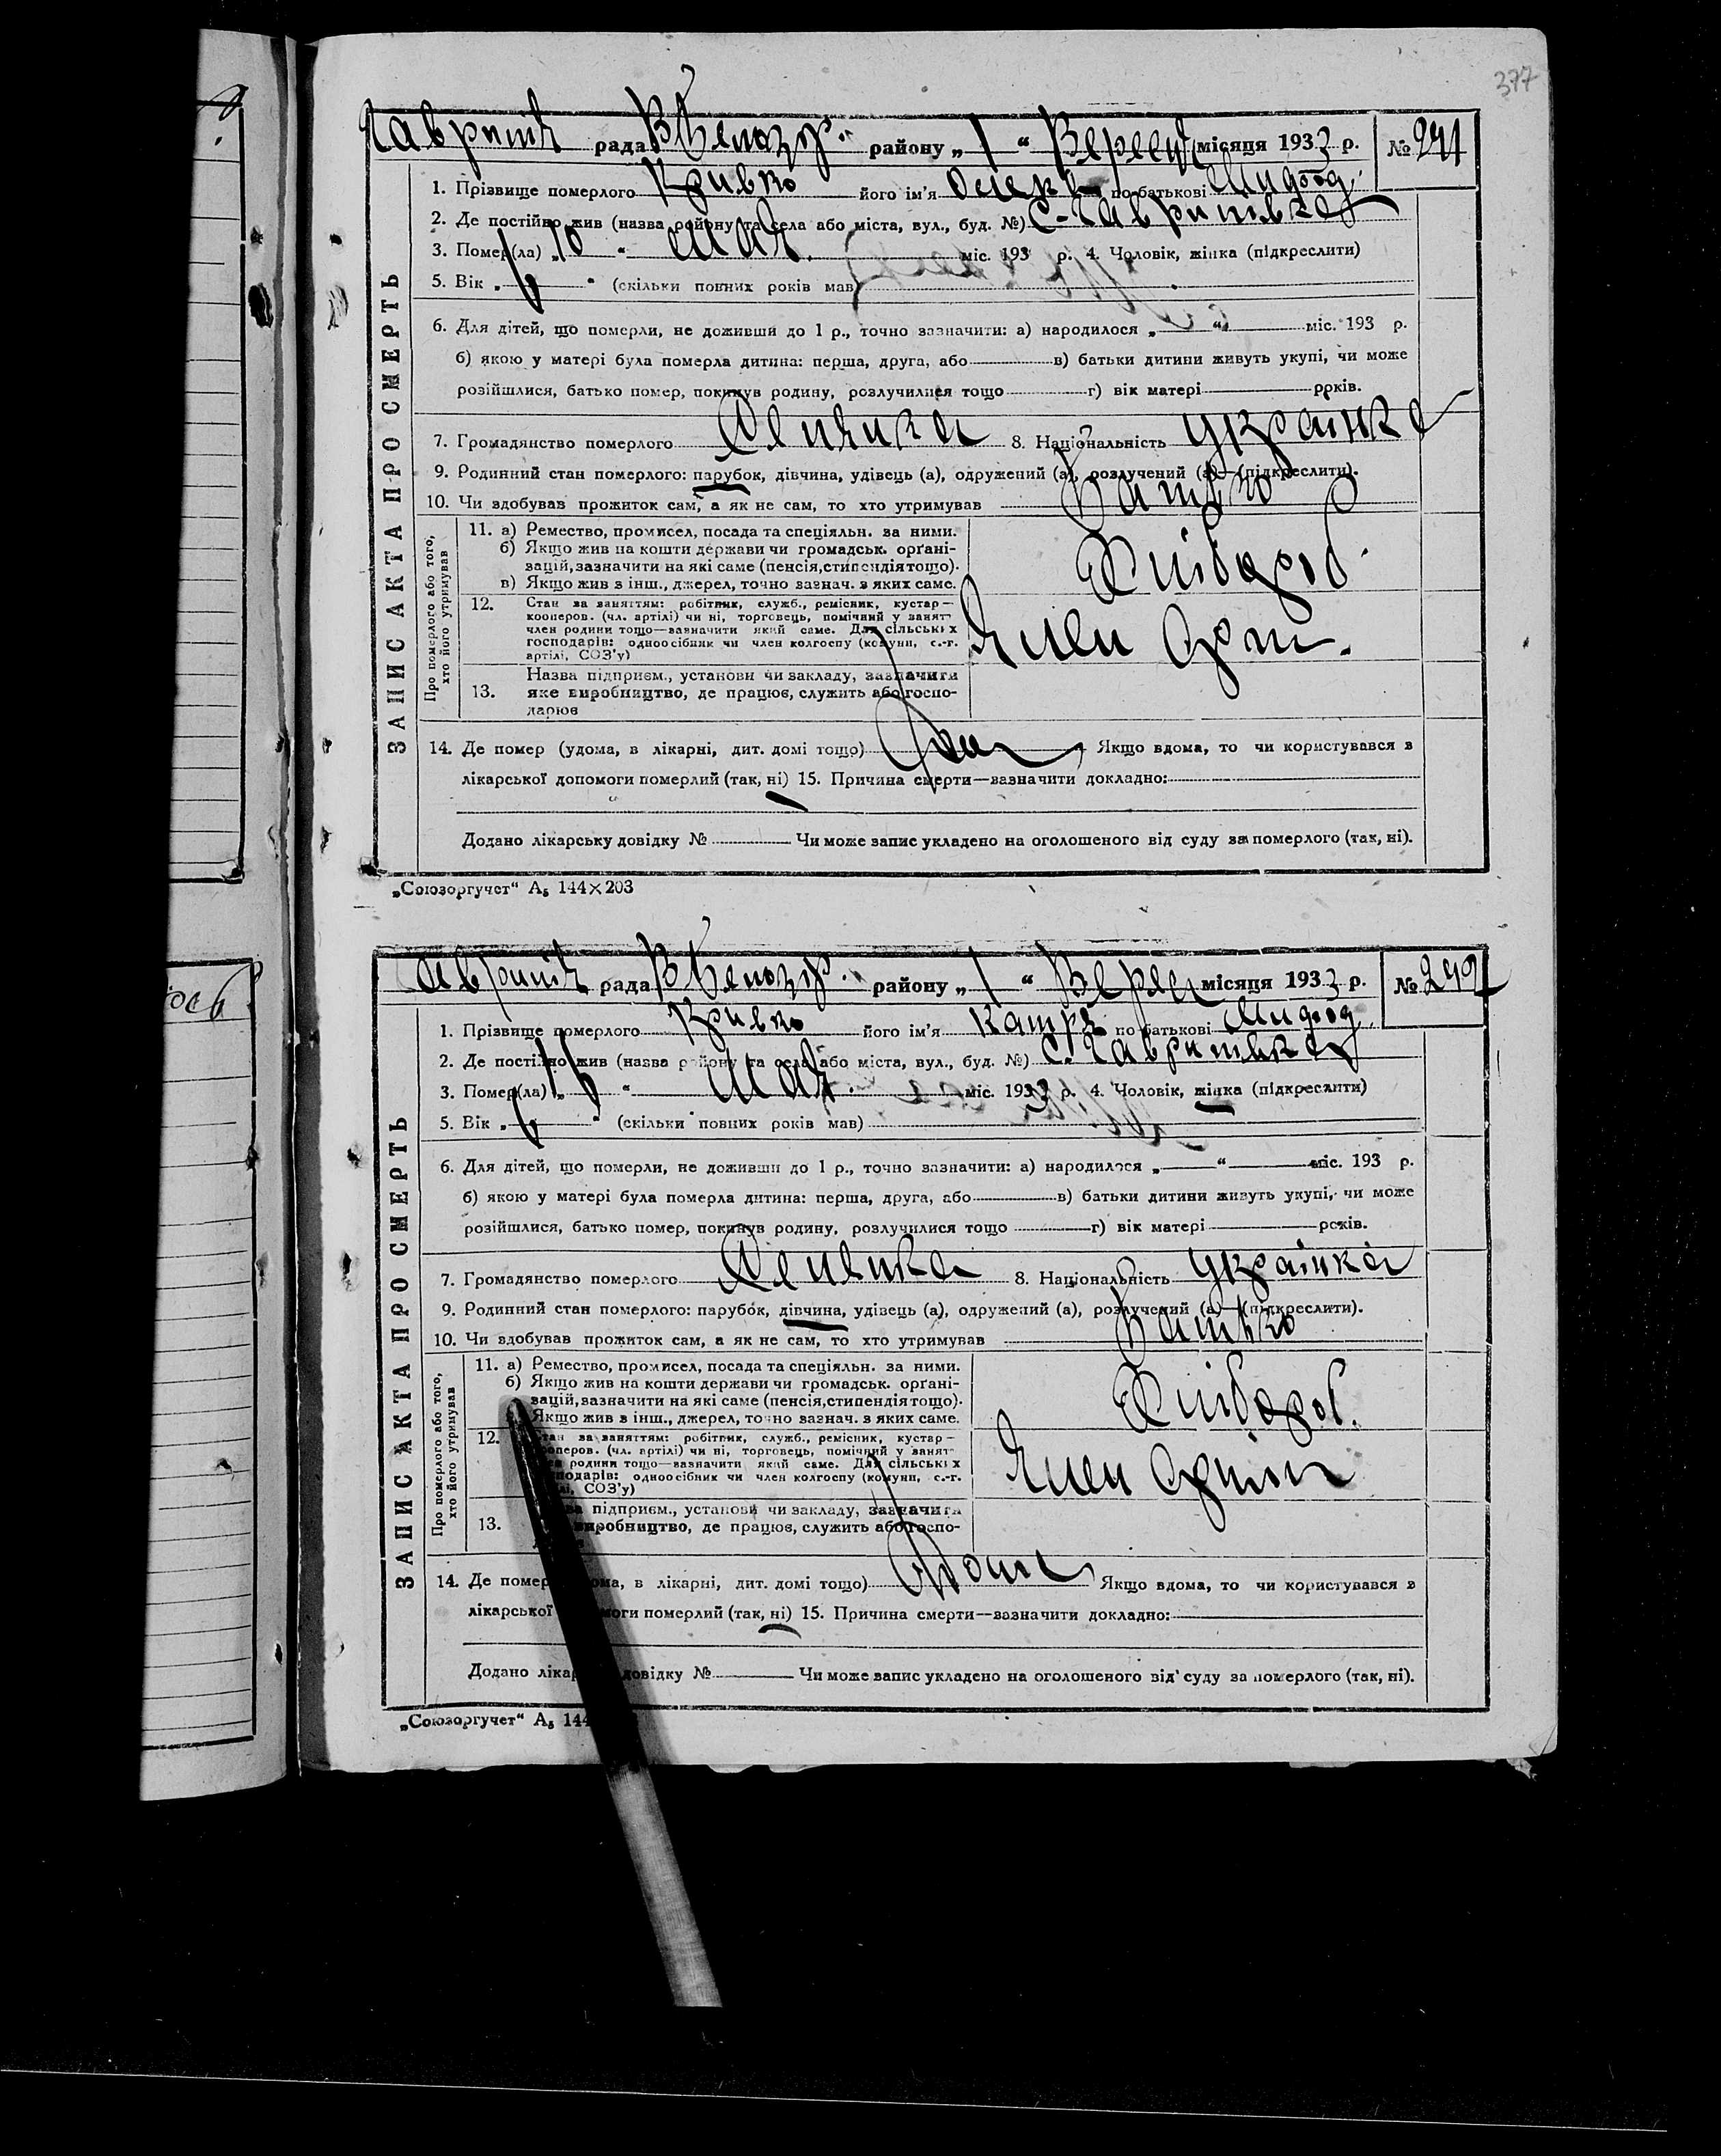 377
рада район у „ 1 “ Верес місяця 1933 р. №
1. Прізвище померлого Кривко його ім'я Олекс по батькові
2. Де постійно жив (назва району та села або міста, вул., буд. №) с. Гавришівка
3. Помер(ла) „10 “ Мая міс. 193 р. 4. Чоловік, жінка (підкреслити)
5. Вік „ 6 “ (скільки повних років мав)
6. Для дітей, що померли, не доживши до 1 р., точно зазначити: а) народилося „ “ міс. 193 р.
б) якою у матері була померла дитина: перша, друга, або в) батьки дитини живуть укупі, чи може
розійшлися, батько помер, покинув родину, розлучилися тощо г) вік матері років.
7. Громадянство померлого 8. Національність Українка
9. Родинний стан померлого: парубок, дівчина, удівець (а), одружений (а), розлучений (а)—(підкреслити).
10. Чи здобував прожиток сам, а як не сам, то хто утримував Батько
ЗАПИС АКТА ПРО СМЕРТЬ
Про померлого або того, хто його утримував
11. а) Ремество, промисел, посада та спеціяльн. за ними.
б) Якщо жив на кошти держави чи громадськ. орґані-
зацій, зазначити на які саме (пенсія, стипендія тощо).
в) Якщо жив з інш., джерел, точно зазнач. з яких саме.
Хлібороб
12. Стан за заняттям: робітник, служб., ремісник, кустар—
кооперов. (чл. артілі) чи ні, торговець, помічний у занят-
член родини тощо—зазначити який саме. Для сільських
господарів: одноосібник чи член колгоспу (комуни, с.-г.
артілі, СОЗ'у)
Член Арт.
13. Назва підприєм., установи чи закладу, зазначити
яке виробництво, де працює, служить або госпо-
дарює
14. Де помер (удома, в лікарні, дит. домі тощо) Якщо вдома, то чи користувався з
лікарської допомоги померлий (так, ні) 15. Причина смерти—зазначити докладно:
Додано лікарську довідку № Чи може запис укладено на оголошеного від суду за померлого (так, ні).
„Союзоргучет“ А5 144×203
рада район у „ 1 “ Верес місяця 1933 р. №
1. Прізвище померлого Кривко його ім'я Катря по батькові
2. Де постійно жив (назва району та села або міста, вул., буд. №) с. Гавришівка
3. Помер(ла) „ “ Мая міс. 1933 р. 4. Чоловік, жінка (підкреслити)
5. Вік „ 6 “ (скільки повних років мав)
6. Для дітей, що померли, не доживши до 1 р., точно зазначити: а) народилося „ “ міс. 193 р.
б) якою у матері була померла дитина: перша, друга, або в) батьки дитини живуть укупі, чи може
розійшлися, батько помер, покинув родину, розлучилися тощо г) вік матері років.
7. Громадянство померлого 8. Національність Українка
9. Родинний стан померлого: парубок, дівчина, удівець (а), одружений (а), розлучений (а)—(підкреслити).
10. Чи здобував прожиток сам, а як не сам, то хто утримував Батько
ЗАПИС АКТА ПРО СМЕРТЬ
Про померлого або того, хто його утримував
11. а) Ремество, промисел, посада та спеціяльн. за ними.
б) Якщо жив на кошти держави чи громадськ. орґані-
зацій, зазначити на які саме (пенсія, стипендія тощо).
Якщо жив з інш., джерел, точно зазнач. з яких саме.
Хлібороб.
12. за заняттям: робітник, служб., ремісник, кустар—
(чл. артілі) чи ні, торговець, помічний у занят-
родини тощо—зазначити який саме. Для сільських
одноосібник чи член колгоспу (комуни, с.-г.
СОЗ'у)
Член Артіли
13. підприєм., установи чи закладу, зазначити
виробництво, де працює, служить або госпо-
14. Де помер в лікарні, дит. домі тощо) Дома Якщо вдома, то чи користувався з
лікарської померлий (так, ні) 15. Причина смерти—зазначити докладно:
Додано № Чи може запис укладено на оголошеного від суду за померлого (так, ні).
„Союзоргучет“ А5